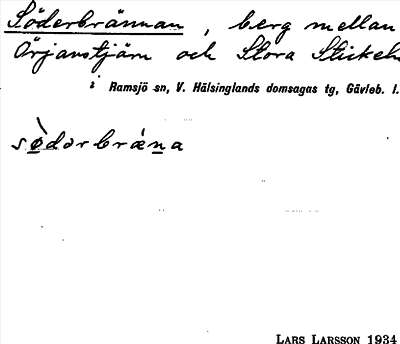 Söderbrännan, berg mellan
Örjanstjärn och Stora
i Ramsjö sn, V. Hälsinglands domsagas tg, Gävleb. l.
LARS LARSSON 1934